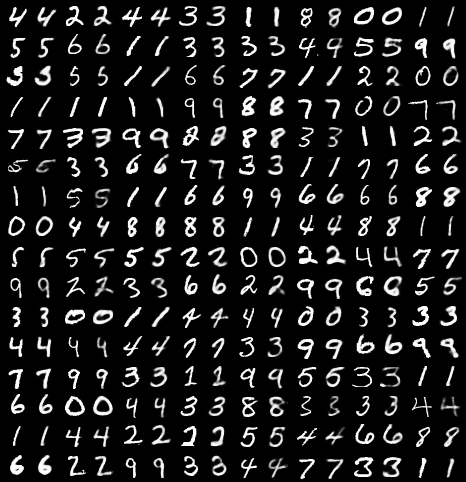 4 4 2 2 4 4 3 3 1 1 8 8 0 0 1 1
5 5 6 6 1 1 3 3 3 3 4 4 5 5 9 9
3 3 5 5 1 1 6 6 7 7 1 1 2 2 0 0
1 1 1 1 1 1 9 9 8 8 7 7 0 0 7 7
7 7 3 3 9 9 8 8 8 8 3 3 1 1 2 2
5 5 3 3 6 6 7 7 3 3 1 1 7 7 6 6
1 1 5 5 1 1 6 6 9 9 6 6 6 6 8 8
0 0 4 4 8 8 8 8 1 1 4 4 8 8 1 1
5 5 5 5 5 5 2 2 0 0 2 2 4 4 7 7
9 9 2 2 3 3 6 6 2 2 9 9 6 6 5 5
3 3 0 0 1 1 4 4 4 4 0 0 3 3 3 3
4 4 4 4 4 4 7 7 3 3 9 9 6 6 9 9
7 7 9 9 3 3 1 1 9 9 5 5 3 3 1 1
6 6 0 0 4 4 3 3 8 8 3 3 3 3 4 4
1 1 4 4 2 2 2 2 5 5 4 4 6 6 8 8
6 6 2 2 9 9 3 3 4 4 7 7 3 3 1 1